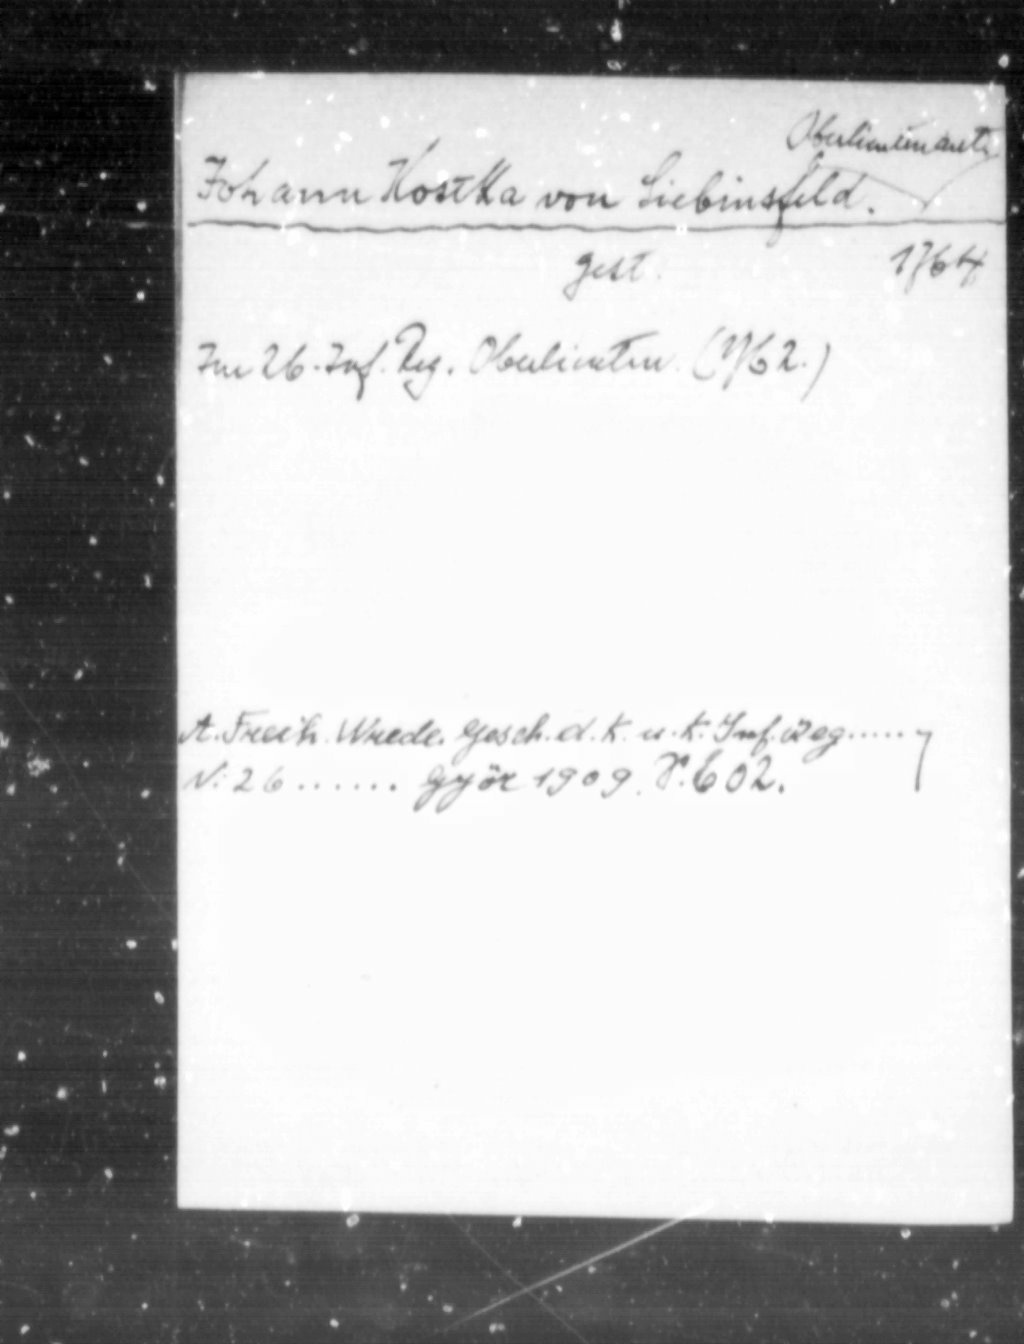 Oberlieutenant
Johann Kostka von Liebinsfeld.
gest. 1764
Im 26. Inf. Reg. Oberlieutn. (1762.)
A. Freih. Wrede. Gesch. d. K. u. K. Inf. Reg......
N: 26 ...... Györ 1909. P. 602.